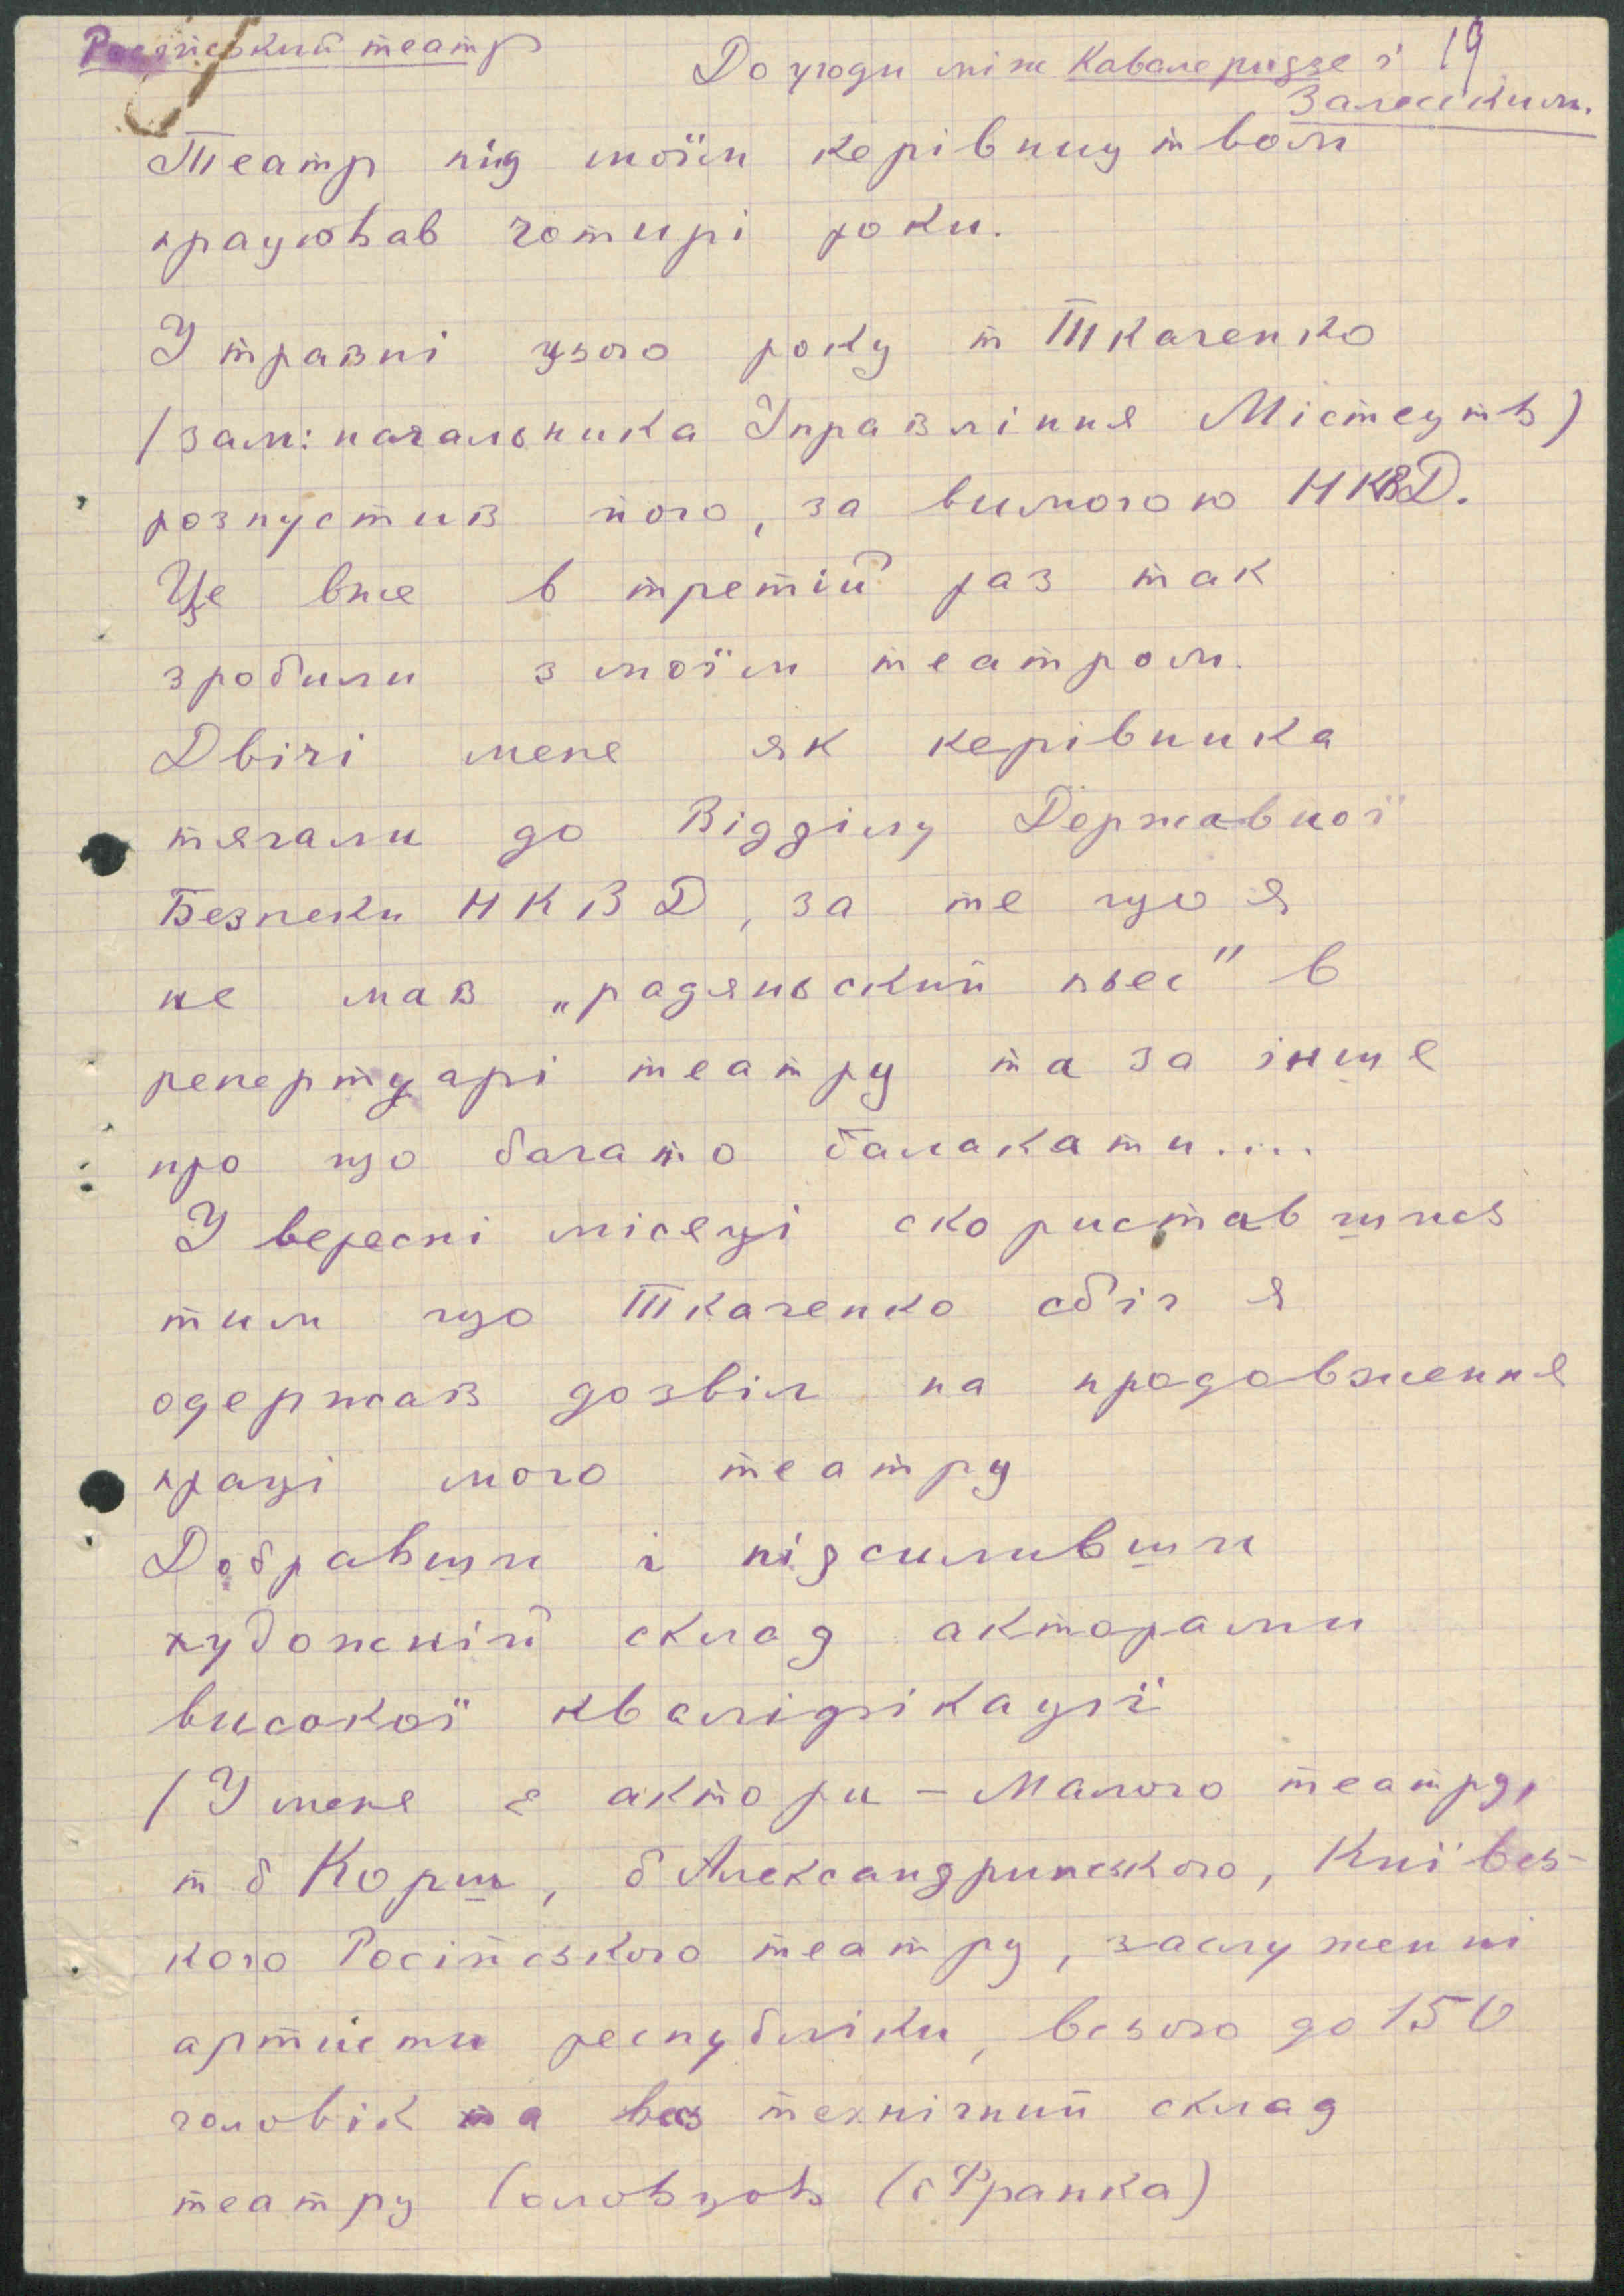 Російський театр
До угоди між Кавалерідзе і 19
Залеським.
Театр під моїм керівництвом
працював чотирі роки.
У травні цього року т Ткаченко
/зам: начальника Управління Містецтв)
розпустив його, за вимогою НКВД.
Це вже в третій раз так
зробили з моїм театром.
Двічі мене як керівника
тягали до Відділу Державної
Безпеки НКВД, за те що я
не мав „радяньский пьес" в
репертуарі театру та за інше
про що багато балакати....
У вересні місеці скориставшись
тим що Ткаченко сбіг я
одержав дозвіл на продовження
праці мого театру
Добравши і підсиливши
художній склад акторами
високої кваліфікації
/У мене є актори – Малого театру,
т б Корш, б Александринського, Київсь-
кого Російського театру, заслуженні
артисти республіки, всього до 150
чоловік та весь технічний склад
театру Соловцов (б Франка)